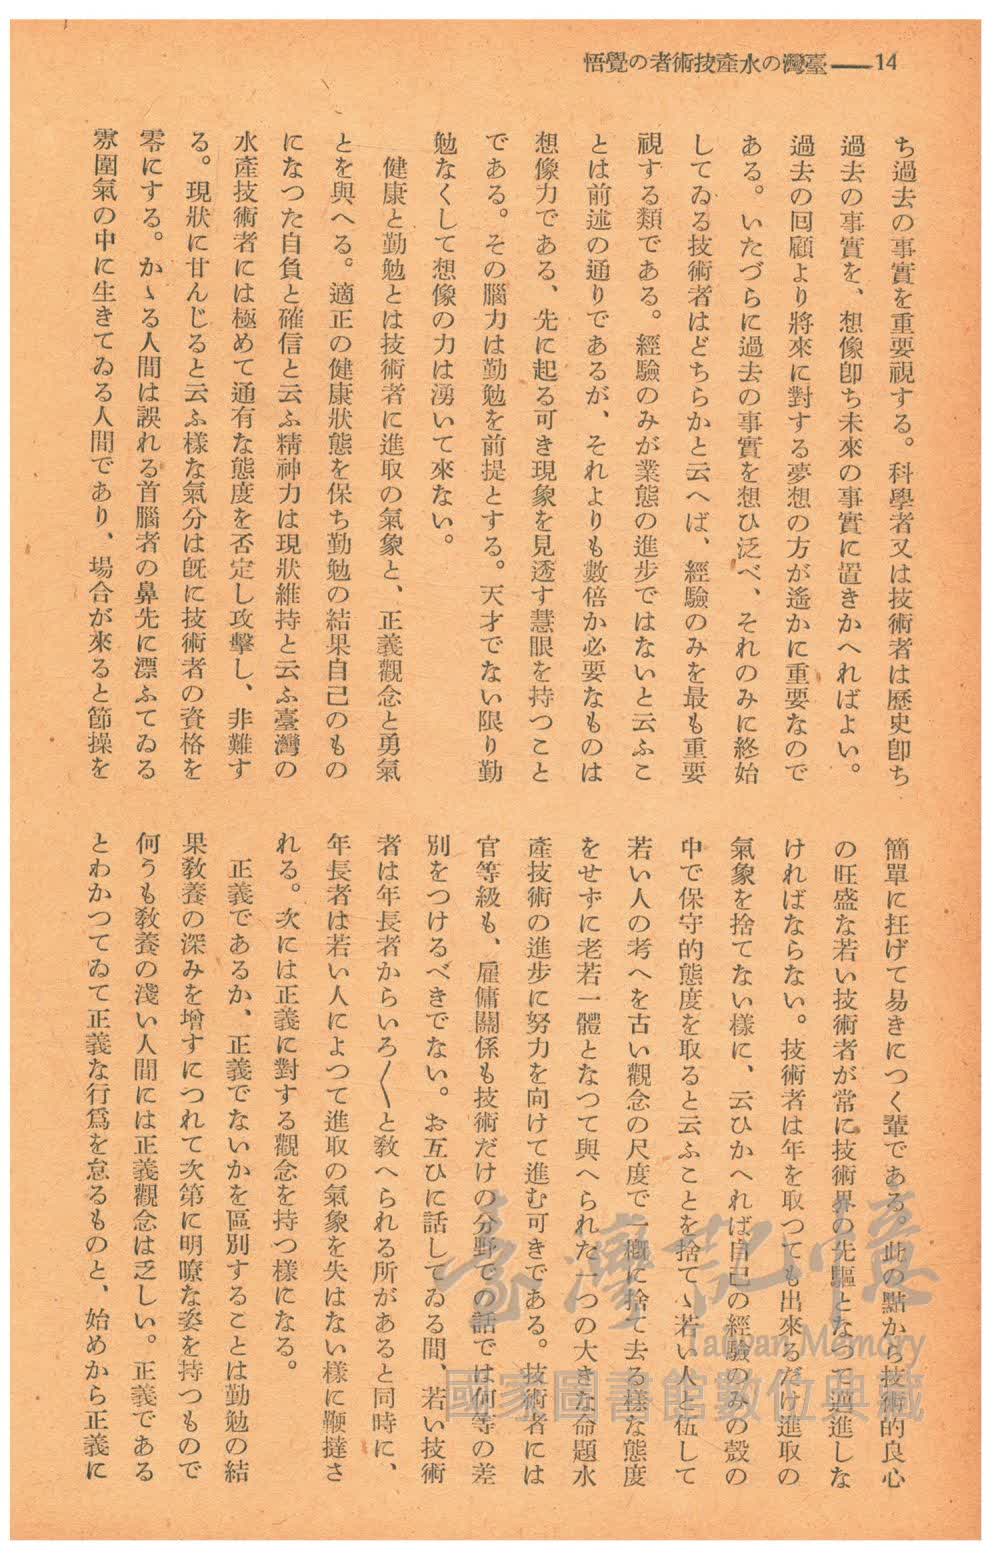 14——臺灣の水產技術者の覺悟
ち過去の事實を重要視する。科學者又は技術者は歷史卽ち
過去の事實を、想像卽ち未來の事實に置きかへればよい。
過去の回顧より將來に對する夢想の方が遙かに重要なので
ある。いたづらに過去の事實を想ひ泛べ、それのみに終始
してゐる技術者はどちらかと云へば、經驗のみを最も重要
視する類である。經驗のみが業態の進步ではないと云ふこ
とは前述の通りであるが、それよりも數倍か必要なものは
想像力である、先に起る可き現象を見透す慧眼を持つこと
である。その腦力は勤勉を前提とする。天才でない限り勤
勉なくして想像の力は湧いて來ない。
健康と勤勉とは技術者に進取の氣象と、正義觀念と勇氣
とを與へる。適正の健康狀態を保ち勤勉の結果自己のもの
になつた自負と確信と云ふ精神力は現狀維持と云ふ臺灣の
水產技術者には極めて通有な態度を否定し攻擊し、非難す
る。現狀に甘んじると云ふ樣な氣分は旣に技術者の資格を
零にする。かゝる人間は誤れる首腦者の鼻先に漂ふてゐる
雰圍氣の中に生きてゐる人間であり、場合が來ると節操を
簡單に抂げて易きにつく輩である。此の點から技術的良心
の旺盛な若い技術者が常に技術界の先驅となつて邁進しな
ければならない。技術者は年を取つても出來るだけ進取の
氣象を捨てない樣に、云ひかへれば自己の經驗のみの殼の
中で保守的態度を取ると云ふことを捨てゝ若い人と伍して
若い人の考へを古い觀念の尺度で一槪に捨て去る樣な態度
をせずに老若一體となつて與へられた一つの大きな命題水
產技術の進步に努力を向けて進む可きである。技術者には
官等級も、雇傭關係も技術だけの分野での話では何等の差
別をつけるべきでない。お互ひに話してゐる間、若い技術
者は年長者からいろ〱と敎へられる所があると同時に、
年長者は若い人によつて進取の氣象を失はない樣に鞭撻さ
れる。次には正義に對する觀念を持つ樣になる。
正義であるか、正義でないかを區別することは勤勉の結
果敎養の深みを增すにつれて次第に明瞭な姿を持つもので
何うも敎養の淺い人間には正義觀念は乏しい。正義である
とわかつてゐて正義な行爲を怠るものと、始めから正義に
臺灣記憶
Taiwan Memory
國家圖書館數位典藏